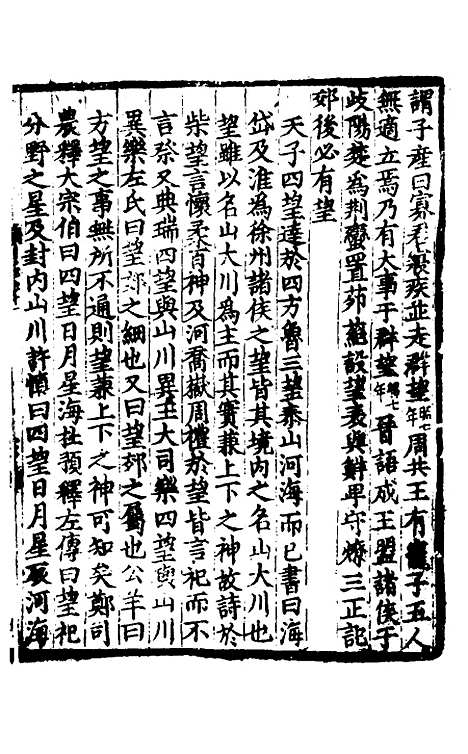 謂子産曰寡君寢疾並走群望昭七年周共王有寵子五人
無適立焉乃有大事于群望昭十年晉語成王盟諸侯于
岐陽楚爲荆蠻置茆蕝設望表與鮮卑守燎三正記
郊後必有望
天子四望達於四方魯三望泰山河海而已書曰海
岱及淮爲徐州諸侯之望皆其境内之名山大川也
望雖以名山大川爲主而其實兼上下之神故詩於
柴望言懷柔百神及河喬嶽周禮於望皆言祀而不
言祭又典瑞四望與山川異玉大司樂四望與山川
異樂左氏曰望郊之細也又曰望郊之屬也公羊曰
方望之事無所不通則望兼上下之神可知矣鄭司
農釋大宗伯曰四望日月星海杜預釋左傳曰望祀
分野之星及封内山川許慎曰四望日月星辰河海